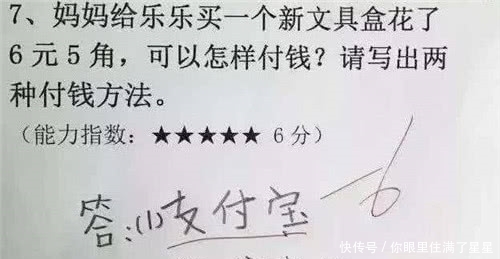 7、妈妈给乐乐买一个新文具盒花了
6元5角，可以怎样付钱？请写出两
种付钱方法。
（能力指数：★★★★★ 6分）
答：(1)支付宝 -6
快传号/你眼里住满了星星